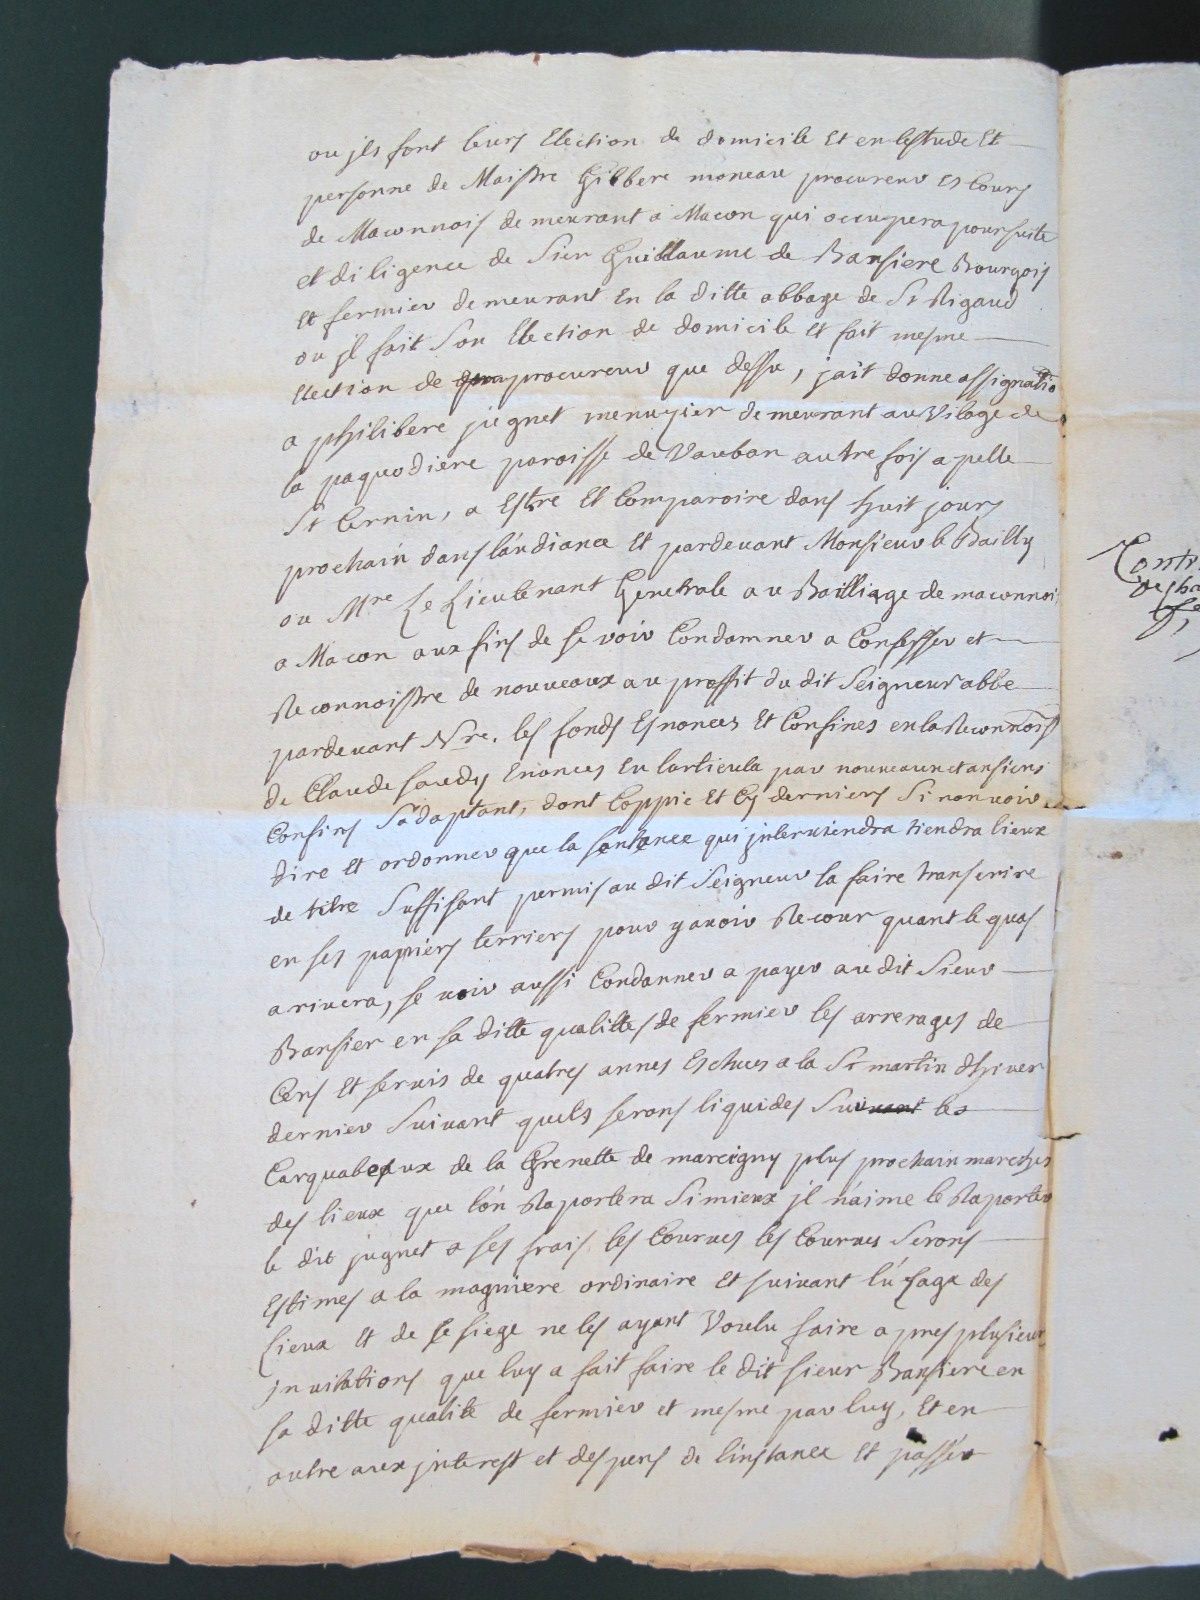 ou jls font leurs Election de domicile Et en lestude Et
personne de Maistre Gilbere moneau procureur es Cours
de Maconnois demeurant a Macon qui occupera poursuite
et diligence de Sieur Guillaume de Bansiere Bourgois
Et fermier demeurant En la ditte abbaye de St Rigaud
ou jl fait Son Election de domicile Et fait mesme
Election de procureur que dessu, jait donne assignatio
a philibere jugnet menuyier demeurant au Vilage de
la paquodiere paroisse de Vauban autre fois apelle
St Cernin, a Estre Et Comparoire dans huit jours
prochain dans laudiance Et pardevant Monsieur le Bailly
ou Mre Le Lieutenant Generale au Bailliage de maconnois
a Macon aux fins de se voir Condamner a Confesser et
Reconnoistre de nouveaux au proffit du dit Seigneur abbe
pardevant Nre. les fonds Esnonces Et Confines en la Reconnoiss
de Claude Enonces En larticula par nouveaux et ansiens
Confins Sadaptant, dont Coppie Et Cy derniers Sinon voir
dire Et ordonner que la santance qui jnterviendra tiendra lieux
de titre Suffisant permis au dit Seigneur la faire transcrire
en ses papiers terriers pour y avoir Recour quant le quas
arivera, se voir aussi Condanner a payer au dit Sieur
Bansier en sa ditte qualittes de fermier les arrerages de
Cens Et servis de quatres annes Eschues a la St martin dhiver
dernier Suivant quels serons liquides Suivant les
Carquabeaux de la Grenette de marcigny plus prochain marches
des lieux que lon Raportera Simieux jl naime le Raporter
le dit jugnet a ses frais, les Courues les Courues Serons
Estimes a la magniere ordinaire Et suivant lusage des
Lieux Et de se siege ne les ayant Voulu faire apres plusieur
jnvitations que luy a fait faire le dit sieur Bansiere en
sa ditte qualite de fermier et mesme par luy, Et en
outre aux jnterest et despens de linstance Et passer